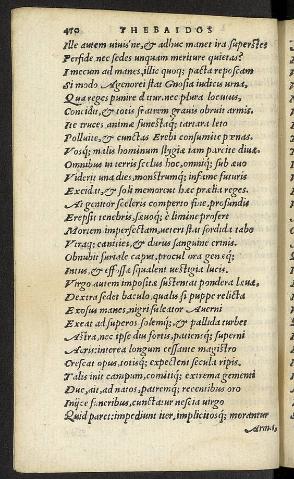 470 THEBAIDOS
Ille autem uiuis'ne, & adhuc manet ira superstes
Perfide nec sedes unquam meriture quietas?
I mecum ad manes, illic quoq; pacta reposcam
Si modo Agenorei stat Gnosia iudicis urna,
Qua reges punire datur. nec plura locutus,
Concidit, & totis fratrem grauis obruit armis.
Ite truces animæ funestaq; tartara leto
Polluite, & cunctas Erebi consumite pœnas.
Vosq; malis hominum stygiæ iam parcite diuæ.
Omnibus in terris scelus hoc, omniq; sub æuo
Viderit una dies, monstrumq; infame futuris
Excidat, & soli memorent hæc prælia reges.
At genitor sceleris comperto fine, profundis
Erepsit tenebris, sæuoq; è limine profert
Mortem imperfectam, ueteri stat sordida tabo
Vtraq; canities, & durus sanguine crinis
Obnubit furiale caput, procul ora genæq;
Intus, & effossæ squalent uestigia lucis.
Virgo autem impositæ sustentat pondera læuæ,
Dextra sedet baculo, qualis si puppe relicta
Exosus manes, nigri sulcator Auerni
Exeat ad superos solemq; & pallida turbet
Astra, nec ipse diu fortis, patiensq; superni
Aeris: interea longum cessante magistro
Crescat opus, totisq; expectent secula ripis.
Talis init campum, comitiq; extrema gementi
Duc, ait, ad natos, patremq; recentibus oro
Inijce funeribus, cunctatur nescia uirgo
Quid paret: impediunt iter, implicitosq; morantur
Arma,